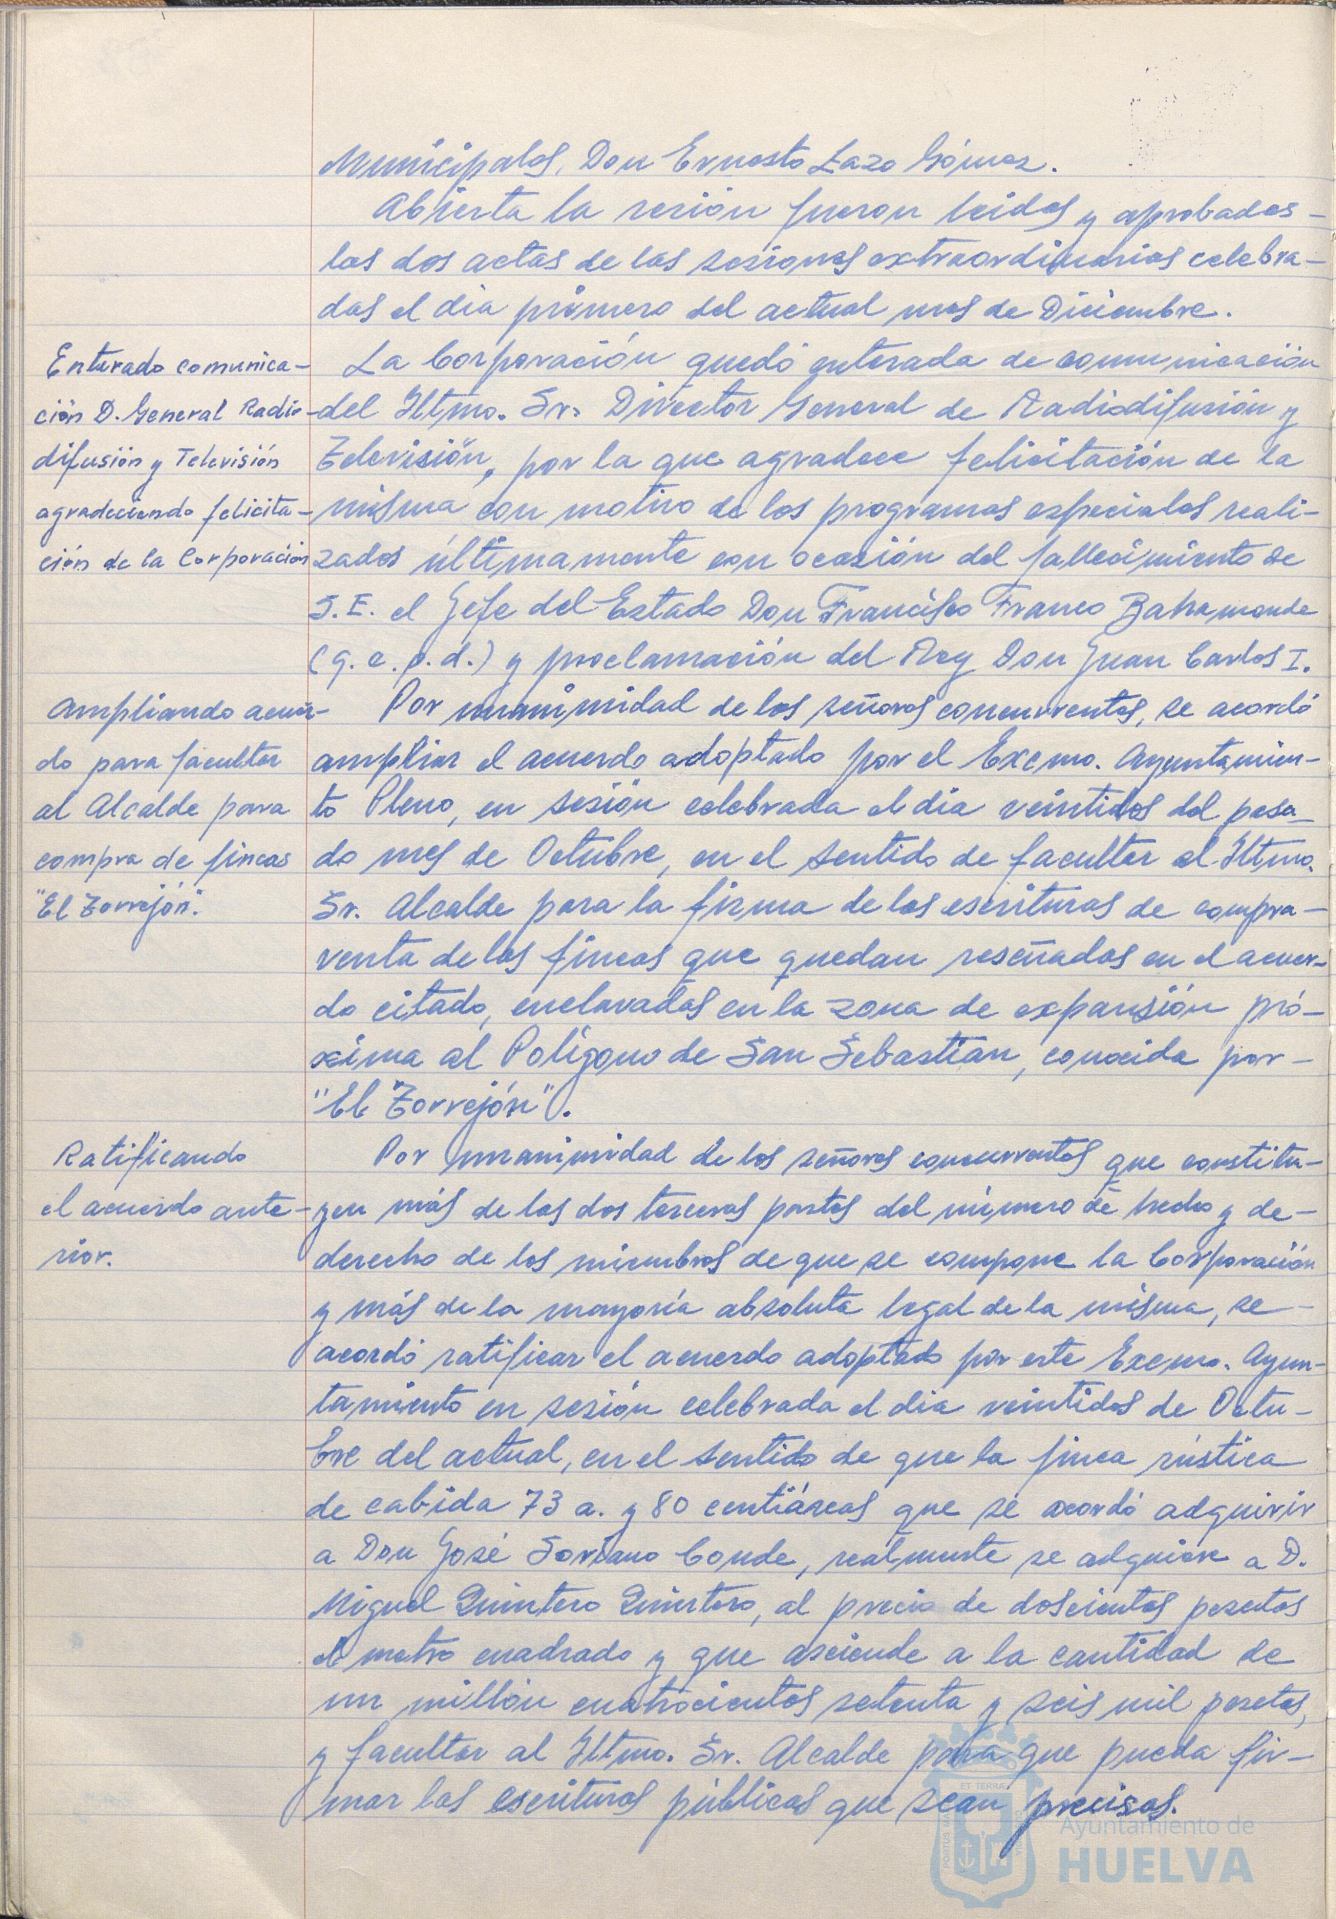 Municipales, Don Ernesto Lazo Gómez.
Abierta la sesión fueron leidas y aprobadas -
las dos actas de las sesiones extraordinarias celebra-
das el dia primero del actual mes de Diciembre.
Enterado comunica-
ción D. General Radio-
difusión y Televisión
agradeciendo felicita-
ción de la Corporación
La Corporación quedó enterada de comunicación
del Iltmo. Sr. Director General de Radiodifusión y
Televisión, por la que agradece felicitación de la
misma con motivo de los programas especiales reali-
zados últimamente con ocasión del fallecimiento de
S.E. el Gefe del Estado Don Francisco Franco Bahamonde
(q.e.p.d.) y proclamación del Rey Don Juan Carlos I.
Ampliando acuer-
do para facultar
al Alcalde para
compra de fincas
"El Torrejón".
Por unanimidad de los señores concurrentes, se acordó
ampliar el acuerdo adoptado por el Excmo. Ayuntamien-
to Pleno, en sesión celebrada el dia veintidos del pasa-
do mes de Octubre, en el sentido de facultar al Iltmo.
Sr. Alcalde para la firma de las escrituras de compra-
venta de las fincas que quedan reseñadas en el acuer-
do citado, enclavadas en la zona de expansión pró-
xima al Polígono de San Sebastian, conocida por -
"El Torrejón".
Ratificando
el acuerdo ante-
rior.
Por unanimidad de los señores concurrentes que constitu-
yen más de las dos terceras partes del número de hecho y de-
derecho de los miembros de que se compone la Corporación
y más de la mayoría absoluta legal de la misma, se -
acordó ratificar el acuerdo adoptado por este Excmo. Ayun-
tamiento en sesión celebrada el dia veintidos de Octu-
bre del actual, en el sentido de que la finca rústica
de cabida 73 a. y 80 centiáreas que se acordó adquirir
a Don José Soriano Conde, realmente se adquiere a D.
Miguel Quintero Quintero, al precio de doscientas pesetas
el metro cuadrado y que asciende a la cantidad de
un millón cuatrocientas setenta y seis mil pesetas,
y facultar al Iltmo. Sr. Alcalde para que pueda fir-
mar las escrituras públicas que sean precisas.
Ayuntamiento de
HUELVA